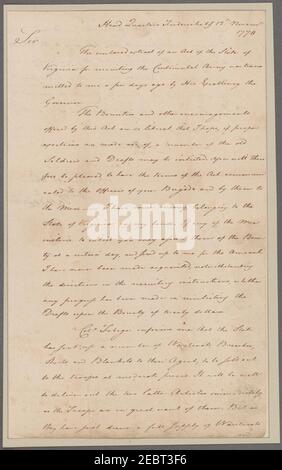 Head Quarters Fredericksb.g 12th Novem.r
1778
Sir
The enclosed extract of an Act of the State of
Virginia for recruiting the Continental Army was trans
mitted to me a few days ago by His Excellency the
Governor
The Bounties and other encouragements
offered by this Act are so liberal that I hope, if proper
exertions are made use of, a number of the old
Soldiers and Drafts may be inlisted. You will there
fore be pleased to have the terms of the Act communi
cated to the Officers of your Brigade and by them to
the Men. money belonging to the
State of Virginia in my hands. If any of the Men
incline to inlist you may give them of the Boun
ty at a certain day, and send up to me for the Amount
I have been made acquainted, notwithstanding
the directions in the recruiting instructions, whether
any progress has been made in reinlisting the
Drafts upon the Bounty of twenty dollars
Col.o Febiger informs me that the State
has sent up a number of Waistcoats Breeches,
Boots and Blankets to their Agent, to be sold out
to the troops at moderate prices. It will be well
to deliver out the two latter Articles immediately
as the Troops are in great want of them. But as
they have just drawn a full supply of Waistcoats
alamy
Image ID: 2WEBT3F6
www.alamy.com